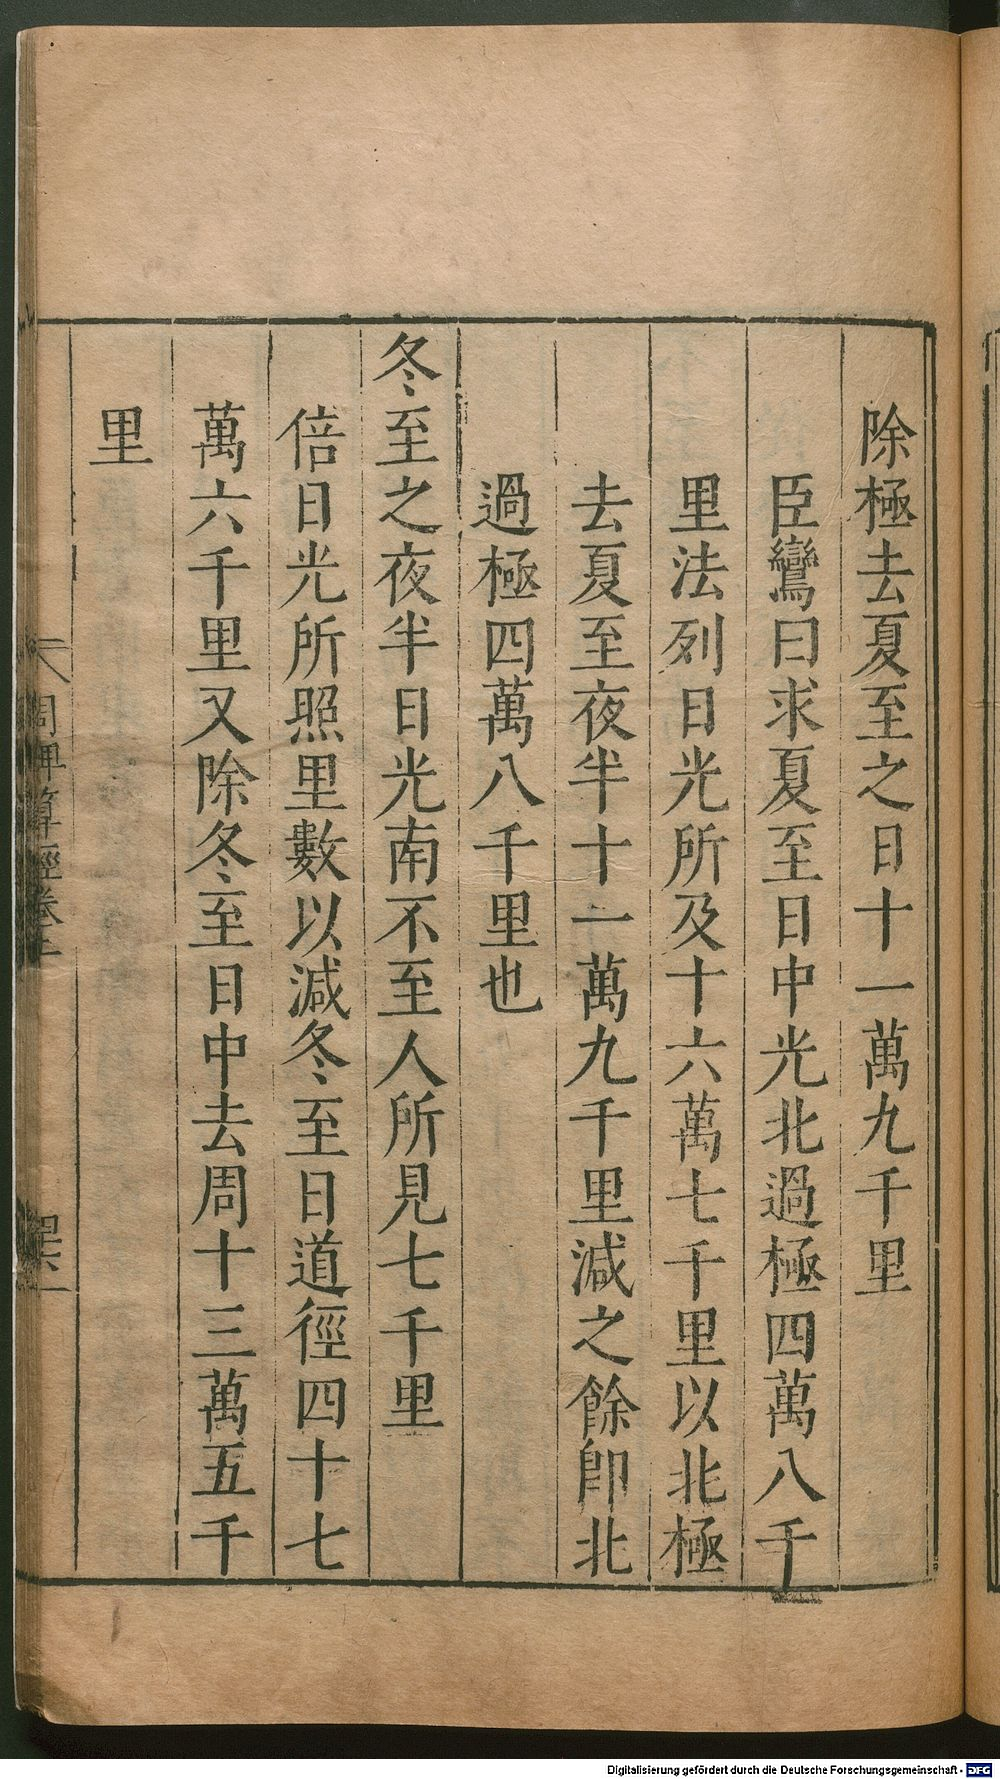 除極去夏至之日十一萬九千里
臣鸞曰求夏至日中光北過極四萬八千
里法列日光所及十六萬七千里以北極
去夏至夜半十一萬九千里減之餘即北
過極四萬八千里也
冬至之夜半日光南不至人所見七千里
倍日光所照里數以減冬至日道徑四十七
萬六千里又除冬至日中去周十三萬五千
里
周髀算經卷上
Digitalisierung gefördert durch die Deutsche Forschungsgemeinschaft - DFG